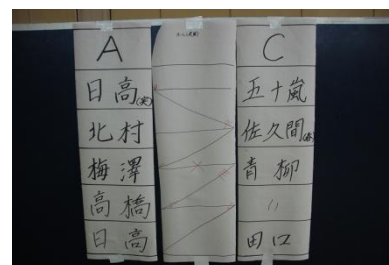 A
日高
北村
梅澤
高橋
日高
C
五十嵐
佐久間
青柳
〃
田口